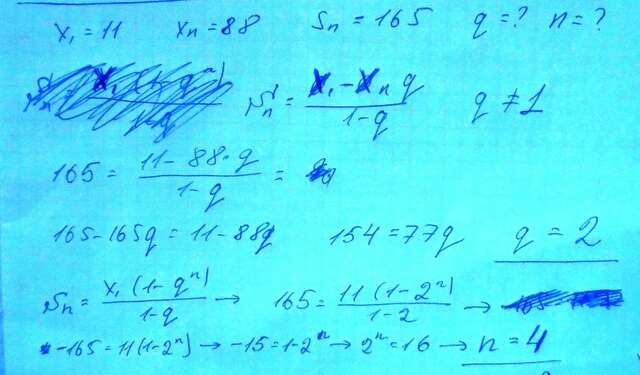 x₁ = 11 xn = 88 Sn = 165 q = ? n = ?
Sn = (x₁ - xn q)/(1 - q) q ≠ 1
165 = (11 - 88·q)/(1 - q) =
165 - 165q = 11 - 88q 154 = 77q q = 2
Sn = x₁(1 - qⁿ)/(1 - q) → 165 = 11(1 - 2ⁿ)/(1 - 2) →
-165 = 11(1 - 2ⁿ) → -15 = 1 - 2ⁿ → 2ⁿ = 16 → n = 4